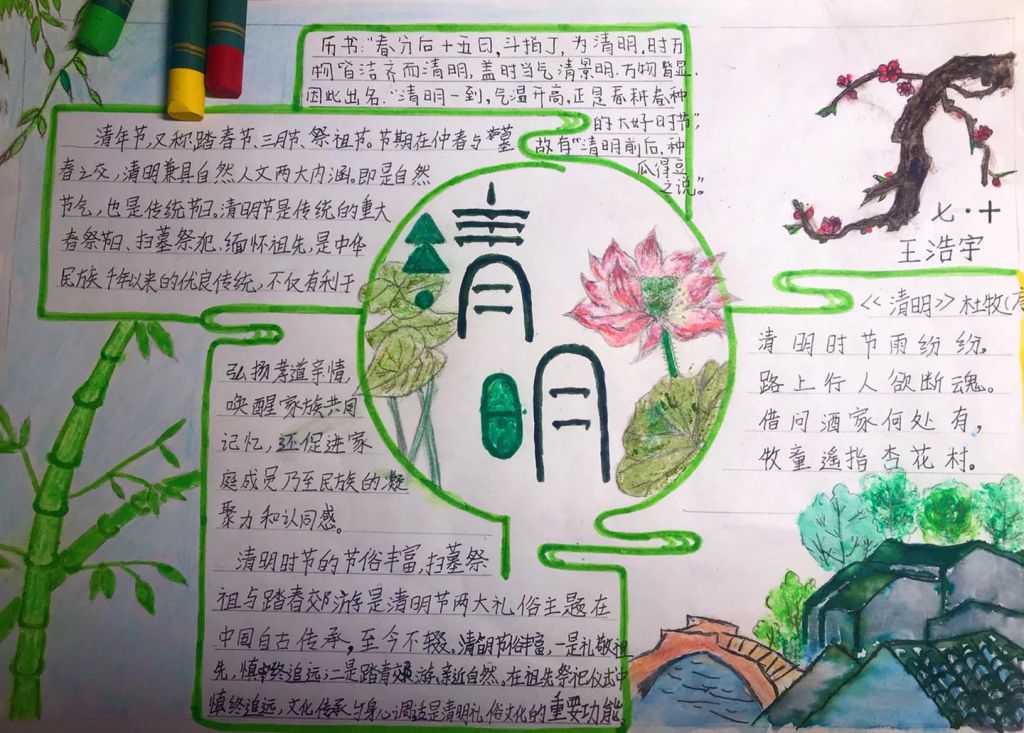 历书：“春分后十五日，斗指丁，为清明，时万
物皆洁齐而清明，盖时当气清景明，万物皆显，
因此出名。“清明一到，气温开高，正是春耕春种
的大好时节”，
故有“清明前后，种
瓜得豆
之说”。
清年节，又称踏春节、三月节、祭祖节。节期在仲春与墓
春之交，清明兼具自然人文两大内涵。即是自然
节气，也是传统节日。清明节是传统的重大
春祭节日、扫墓祭祀、缅怀祖先，是中华
民族千年以来的优良传统，不仅有利于
清
明
弘扬孝道亲情，
唤醒家族共同
记忆，还促进家
庭成员乃至民族的凝
聚力和认同感。
清明时节的节俗丰富，扫墓祭
祖与踏春郊游是清明节两大礼俗主题在
中国自古传承，至今不辍。清明节俗丰富，一是礼敬祖
先，慎终追远；二是踏青郊游、亲近自然。在祖先祭祀仪式中
慎终追远，文化传承与身心调适是清明礼俗文化的重要功能。
七·十
王浩宇
<<清明>>杜牧
清明时节雨纷纷。
路上行人欲断魂。
借问酒家何处有，
牧童遥指杏花村。